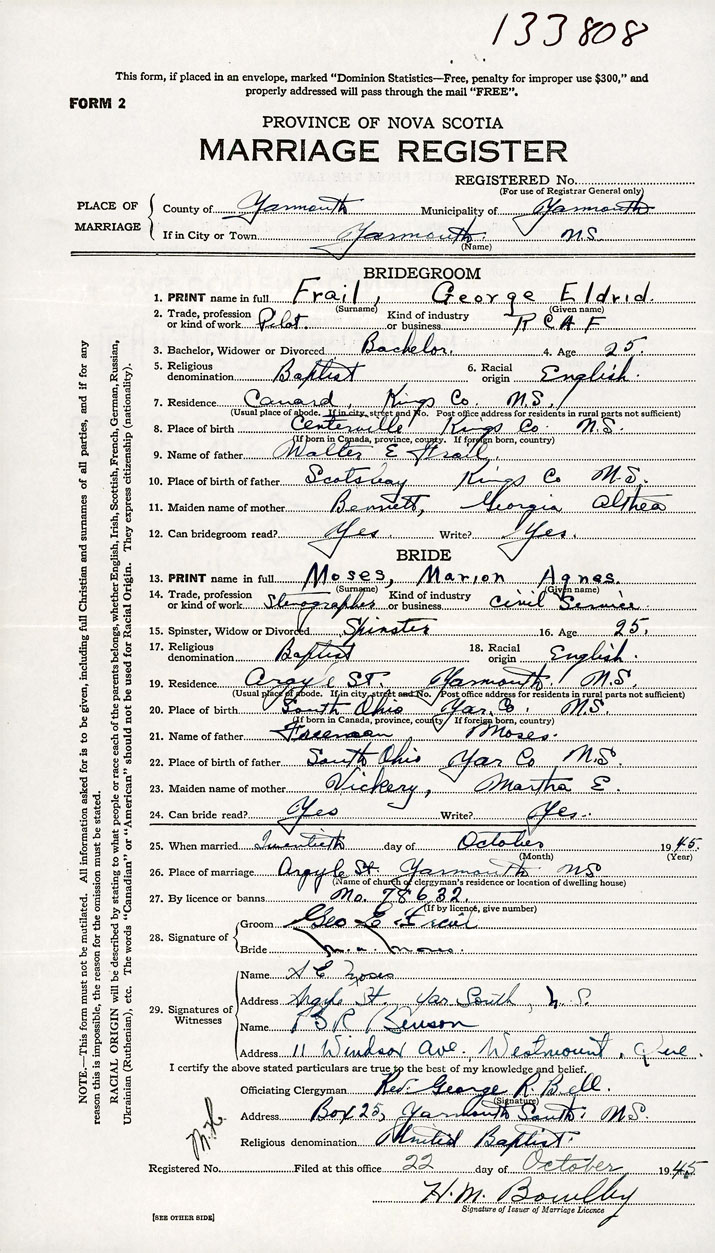 133808
This form, if placed in an envelope, marked "Dominion Statistics—Free, penalty for improper use $300," and
properly addressed will pass through the mail "FREE".
FORM 2
PROVINCE OF NOVA SCOTIA
MARRIAGE REGISTER
REGISTERED No.
(For use of Registrar General only)
PLACE OF MARRIAGE
County of Yarmouth Municipality of Yarmouth
If in City or Town Yarmouth N.S.
(Name)
BRIDEGROOM
1. PRINT name in full Frail, George Eldrid.
(Surname) (Given name)
2. Trade, profession or kind of work Pilot. Kind of industry or business R C A F
3. Bachelor, Widower or Divorced Bachelor. 4. Age 25.
5. Religious denomination Baptist 6. Racial origin English.
7. Residence Canard, Kings Co N.S.
(Usual place of abode. If in city, street and No. Post office address for residents in rural parts not sufficient)
8. Place of birth Centerville Kings Co. N.S.
(If born in Canada, province, county. If foreign born, country)
9. Name of father Walter E Frail.
10. Place of birth of father Scotsbay Kings Co N.S.
11. Maiden name of mother Bennett, Georgia Althea
12. Can bridegroom read? Yes. Write? Yes.
BRIDE
13. PRINT name in full Moses, Marion Agnes.
(Surname) (Given name)
14. Trade, profession or kind of work Stenographer Kind of industry or business Civil Service.
15. Spinster, Widow or Divorced Spinster 16. Age 25.
17. Religious denomination Baptist 18. Racial origin English.
19. Residence Argyle St. Yarmouth. N.S.
(Usual place of abode. If in city, street and No. Post office address for residents in rural parts not sufficient)
20. Place of birth South Ohio Yar. Co. N.S.
(If born in Canada, province, county. If foreign born, country)
21. Name of father Freeman Moses.
22. Place of birth of father South Ohio Yar Co N.S.
23. Maiden name of mother Vickery, Martha E.
24. Can bride read? Yes Write? Yes.
25. When married Twentieth day of October 1945.
(Month) (Year)
26. Place of marriage Argyle St Yarmouth NS
(Name of church or clergyman's residence or location of dwelling house)
27. By licence or banns No. 78632.
(If by licence, give number)
28. Signature of
Groom Geo E Frail
Bride M. A. Moses.
29. Signatures of Witnesses
Name Moses
Address Argyle St. Yar South, N.S.
Name Benson
Address 11 Windsor Ave. Westmount, Que.
I certify the above stated particulars are true to the best of my knowledge and belief.
Officiating Clergyman Rev. George R. Bell.
(Signature)
Address Box 25, Yarmouth South. N.S.
Religious denomination United Baptist.
Registered No. Filed at this office 22 day of October 1945
H. M. Bowlby
Signature of Issuer of Marriage Licence
[SEE OTHER SIDE]
NOTE.—This form must not be mutilated. All information asked for is to be given, including full Christian and surnames of all parties, and if for any
reason this is impossible, the reason for the omission must be stated.
RACIAL ORIGIN will be described by stating to what people or race each of the parents belongs, whether English, Irish, Scottish, French, German, Russian,
Ukrainian (Ruthenian), etc. The words "Canadian" or "American" should not be used for Racial Origin. They express citizenship (nationality).